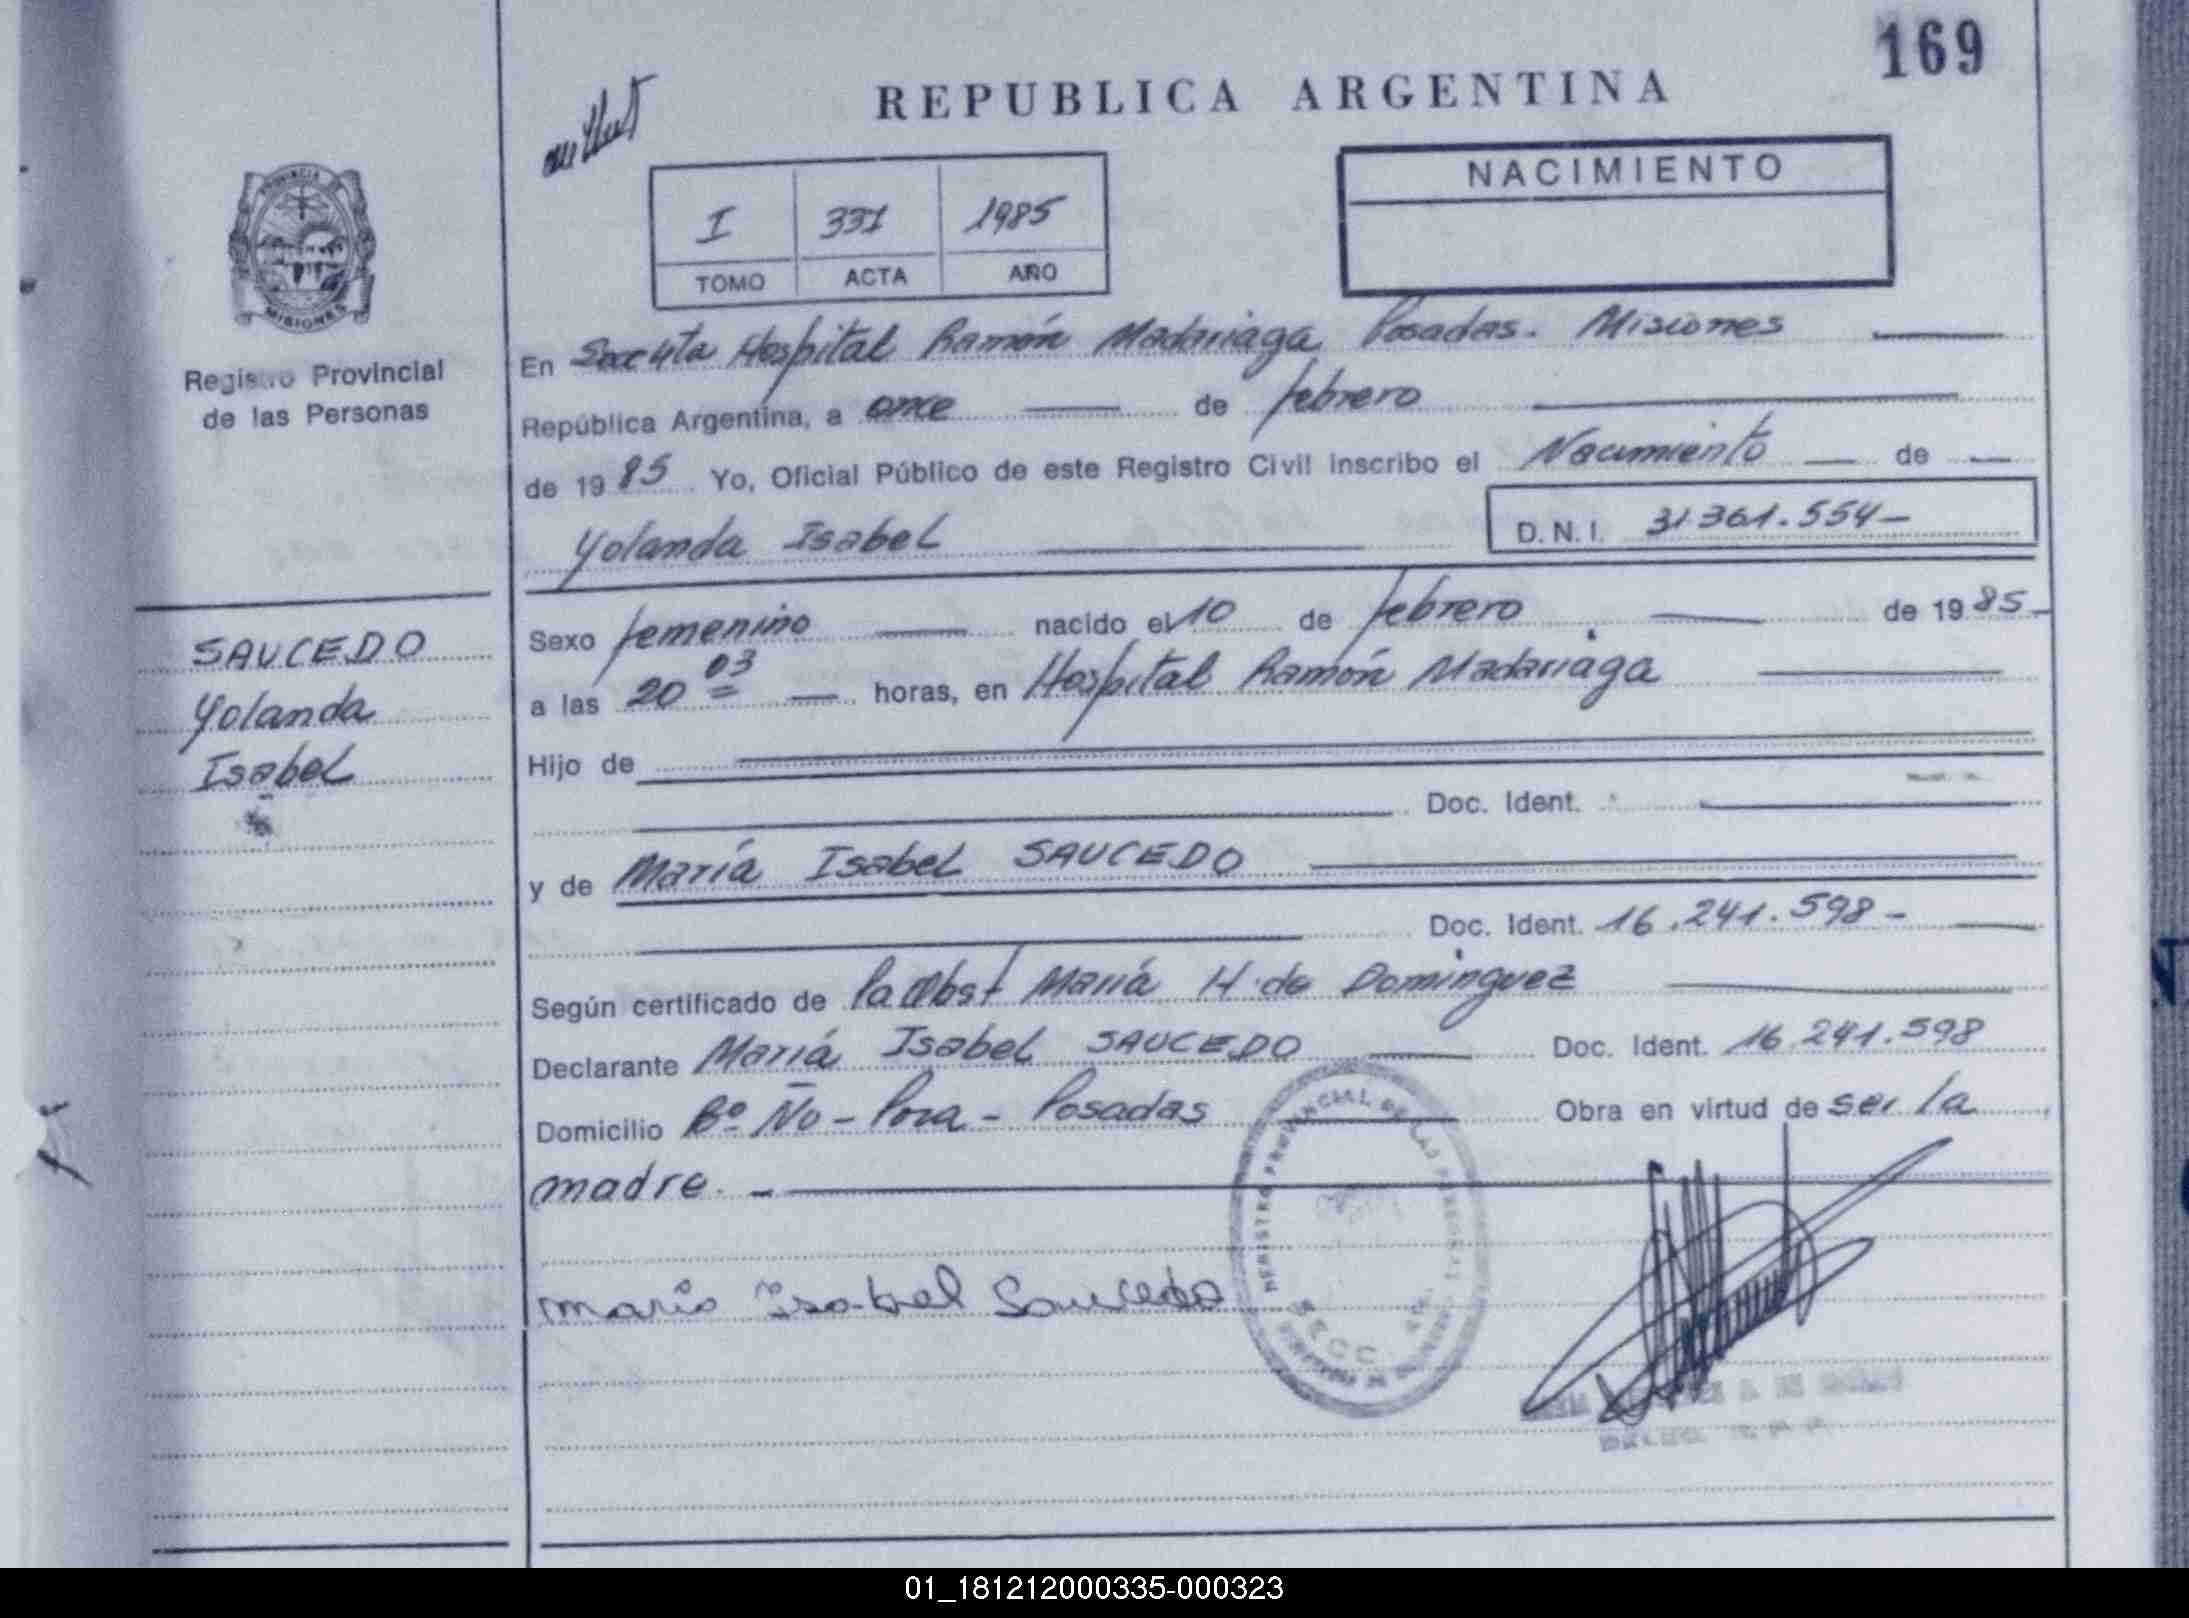 169
REPUBLICA ARGENTINA
NACIMIENTO
I 331 1985
TOMO ACTA AÑO
PROVINCIA
MISIONES
Registro Provincial
de las Personas
En Secc 4ta Hospital Ramón Madariaga Posadas. Misiones
República Argentina, a once de febrero
de 1985 Yo, Oficial Público de este Registro Civil inscribo el Nacimiento de
Yolanda Isabel D.N.I. 31.361.554-
SAUCEDO
Yolanda
Isabel
Sexo femenino nacido el 10 de febrero de 1985-
a las 20 03 horas, en Hospital Ramón Madariaga
Hijo de
Doc. Ident.
y de María Isabel SAUCEDO
Doc. Ident. 16.241.598-
Según certificado de la Obst María H. de Dominguez
Declarante María Isabel SAUCEDO Doc. Ident. 16.241.598
Domicilio Bº Ñu - Pora - Posadas Obra en virtud de ser la
madre.
maria Isabel Saucedo
SECC.
01_181212000335-000323